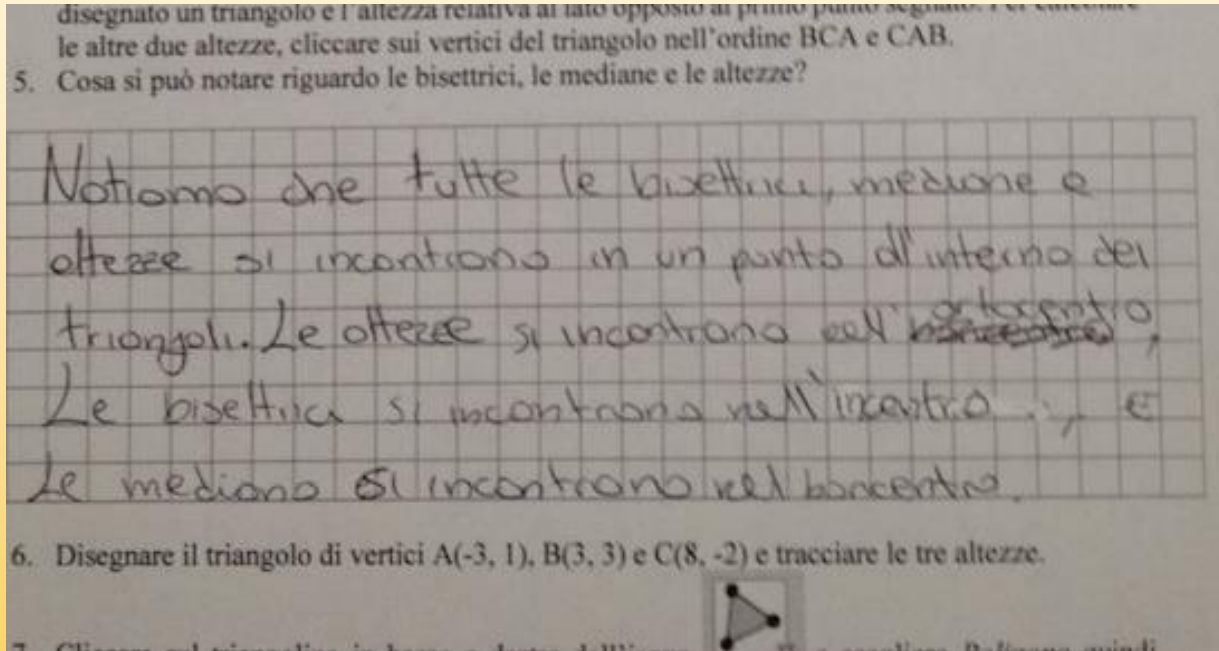 disegnato un triangolo e l'altezza relativa al lato opposto al primo punto segnato. Per calcolare
le altre due altezze, cliccare sui vertici del triangolo nell'ordine BCA e CAB.
5. Cosa si può notare riguardo le bisettrici, le mediane e le altezze?
Notiamo che tutte le bisettrici, mediane e
altezze si incontrano in un punto all'interno dei
triangoli. Le altezze si incontrano nell'ortocentro,
Le bisettrici si incontrano nell'incentro , e
Le mediane si incontrano nel baricentro.
6. Disegnare il triangolo di vertici A(-3, 1), B(3, 3) e C(8, -2) e tracciare le tre altezze.